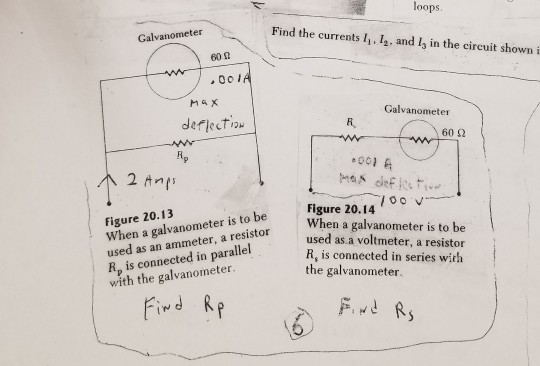 loops.
Find the currents I₁, I₂, and I₃ in the circuit shown i
Galvanometer
60 Ω
.001A
max
deflection
Rp
2 Amps
Figure 20.13
When a galvanometer is to be
used as an ammeter, a resistor
Rp is connected in parallel
with the galvanometer.
Find Rp
Galvanometer
R
60 Ω
.001 A
max deflection
100 V
Figure 20.14
When a galvanometer is to be
used as a voltmeter, a resistor
Rs is connected in series with
the galvanometer.
Find Rs
6